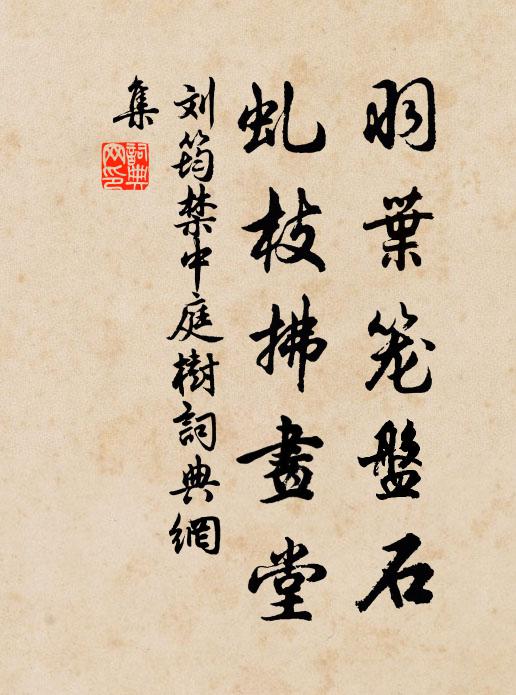 羽葉笼盤石
虬枝拂畫堂
刘筠禁中庭樹詞典網
集
詞典
网印